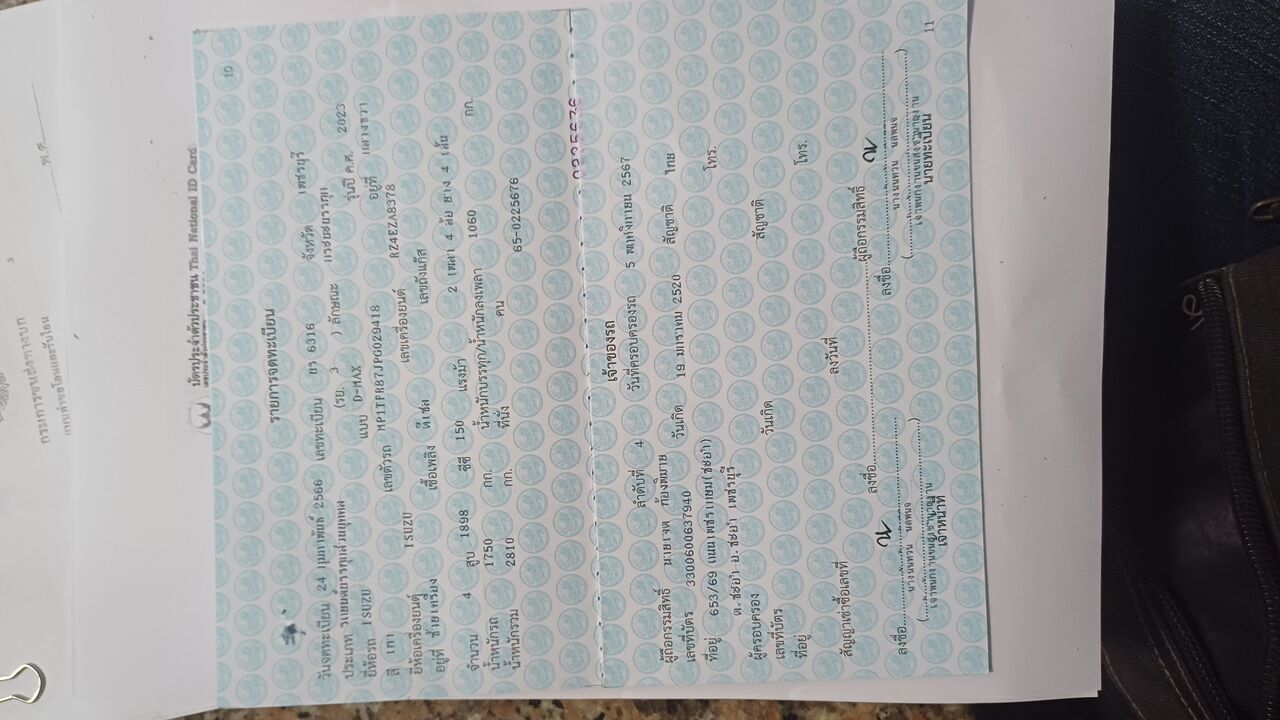 กรมการขนส่งทางบก
แบบคำขอโอนและรับโอน
พ.ศ.
บัตรประจำตัวประชาชน Thai National ID Card
10
รายการจดทะเบียน
วันจดทะเบียน 24 กุมภาพันธ์ 2566 เลขทะเบียน ยร 6316 จังหวัด เพชรบุรี
ประเภท รถยนต์บรรทุกส่วนบุคคล (รย. 3 ) ลักษณะ กระบะบรรทุก
ยี่ห้อรถ ISUZU แบบ D-MAX รุ่นปี ค.ศ. 2023
สี เทา เลขตัวรถ MP1TFR87JPG029418 อยู่ที่ กลางขวา
ยี่ห้อเครื่องยนต์ ISUZU เลขเครื่องยนต์ RZ4EZA8378
อยู่ที่ ซ้ายเครื่อง เชื้อเพลิง ดีเซล เลขถังแก๊ส
จำนวน 4 สูบ 1898 ซีซี 150 แรงม้า 2 เพลา 4 ล้อ ยาง 4 เส้น
น้ำหนักรถ 1750 กก. น้ำหนักบรรทุก/น้ำหนักลงเพลา 1060 กก.
น้ำหนักรวม 2810 กก. ที่นั่ง คน 65-0225676
เจ้าของรถ
ลำดับที่ 4 วันที่ครอบครองรถ 5 พฤศจิกายน 2567
ผู้ถือกรรมสิทธิ์ นายเจต ก้องพิมาย
เลขที่บัตร 3300600637940 วันเกิด 19 มกราคม 2520 สัญชาติ ไทย
ที่อยู่ 653/69 ถนนเพชรเกษม(ชะอำ) โทร.
ต.ชะอำ อ.ชะอำ เพชรบุรี
ผู้ครอบครอง
เลขที่บัตร วันเกิด สัญชาติ
ที่อยู่ โทร.
สัญญาเช่าซื้อเลขที่ ลงวันที่
ลงชื่อ ผู้ถือกรรมสิทธิ์
ลงชื่อ ลงชื่อ
เจ้าหน้าที่ นายทะเบียน
11